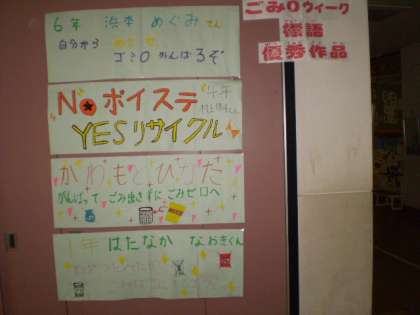 ごみ0ウィーク
標語
優秀作品
6年 浜本 めぐみさん
自分から
ゴミ0 がんばろぞ
Noポイステ
4年
YESリサイクル
かわもとひなた
がんばって ごみ出さずに ごみゼロへ
1年 はたなか なおきくん